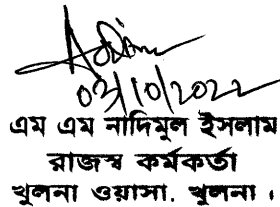 ০৩/১০/২০২২
এম এম নাদিমুল ইসলাম
রাজস্ব কর্মকর্তা
খুলনা ওয়াসা, খুলনা।